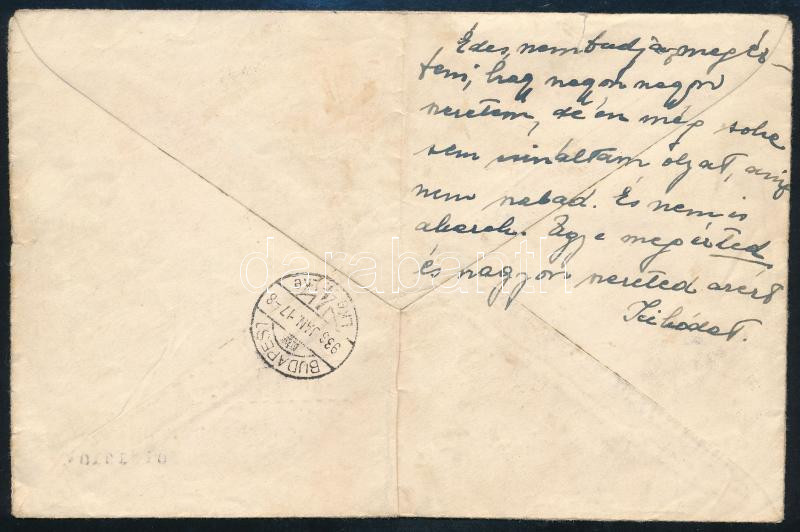 Édes, nem tudja megér-
teni, hogy nagyon nagyon
szeretem, de én még soha
sem csináltam olyat, amit
nem szabad. És nem is
akarok. Ugye megérted
és nagyon szereted azért
BUDAPEST
935 JAN. 17-8
darabanth.com